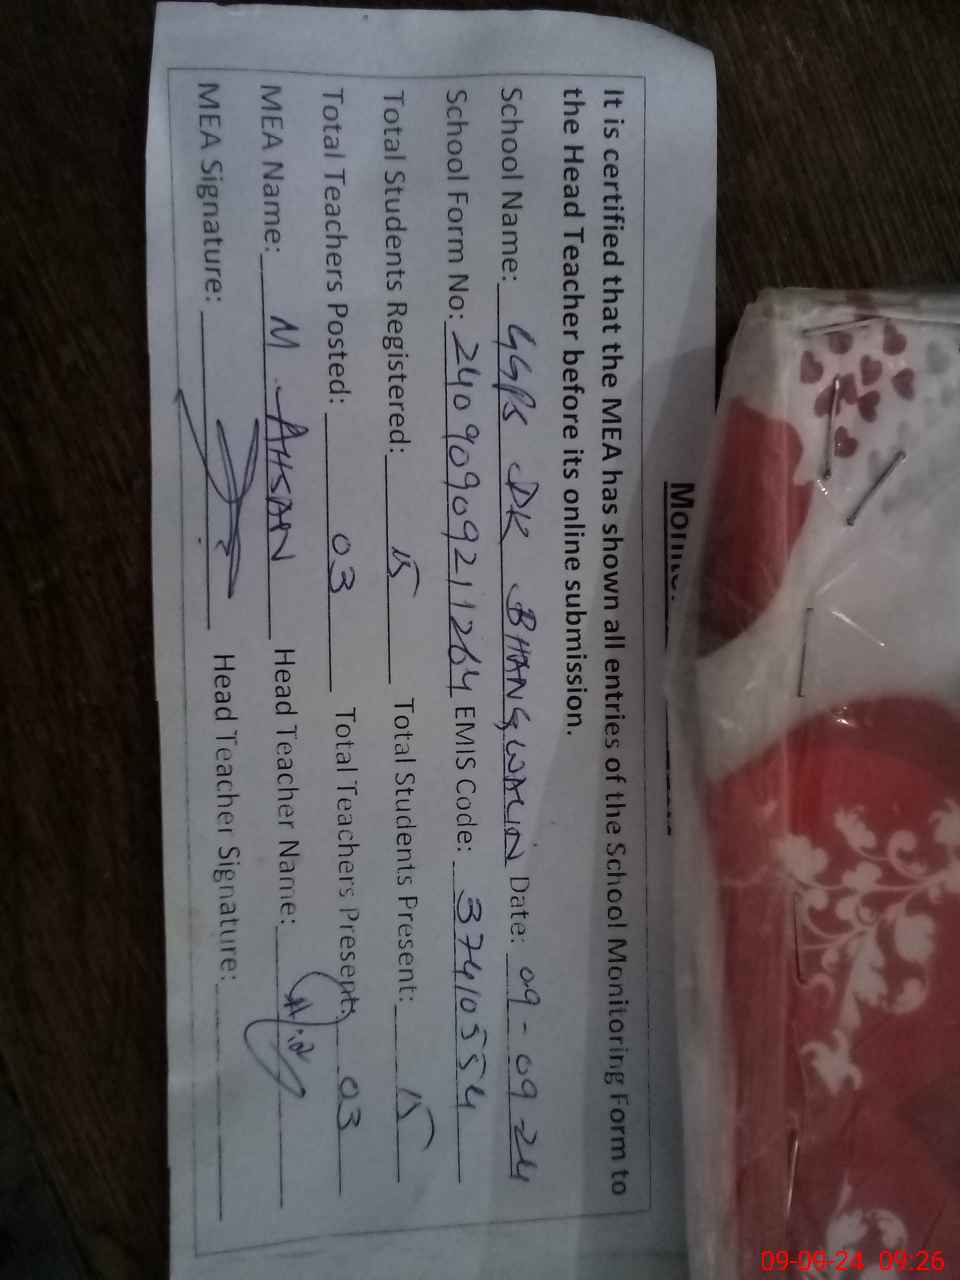 It is certified that the MEA has shown all entries of the School Monitoring Form to
the Head Teacher before its online submission.
School Name: GGPS DK BHANGWALIN Date: 09-09-24
School Form No: 24090909211264 EMIS Code: 37410554
Total Students Registered: 15 Total Students Present: 15
Total Teachers Posted: 03 Total Teachers Present: 03
MEA Name: M. AHSAN Head Teacher Name:
MEA Signature: Head Teacher Signature:
09-09-24 09:26